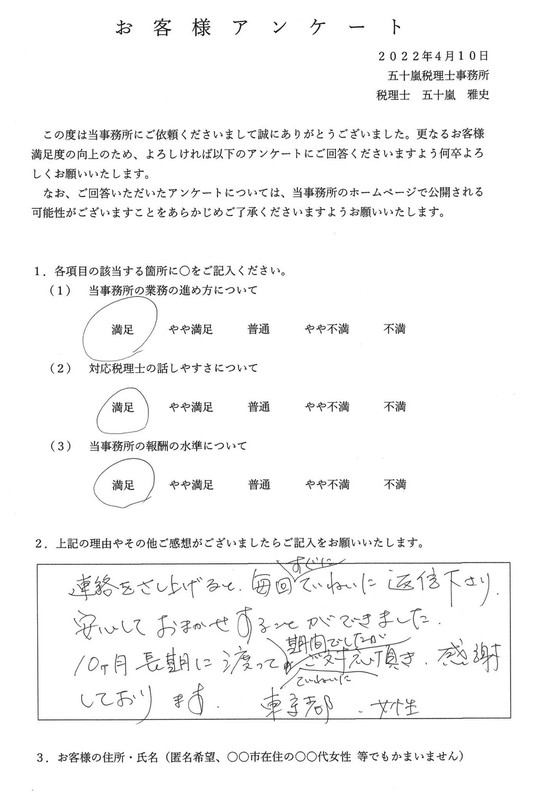 お客様アンケート
２０２２年４月１０日
五十嵐税理士事務所
税理士　五十嵐　雅史
この度は当事務所にご依頼くださいまして誠にありがとうございました。更なるお客様
満足度の向上のため、よろしければ以下のアンケートにご回答くださいますよう何卒よろ
しくお願いいたします。
なお、ご回答いただいたアンケートについては、当事務所のホームページで公開される
可能性がございますことをあらかじめご了承くださいますようお願いいたします。
１．各項目の該当する箇所に〇をご記入ください。
（１）　当事務所の業務の進め方について
満足　やや満足　普通　やや不満　不満
（２）　対応税理士の話しやすさについて
満足　やや満足　普通　やや不満　不満
（３）　当事務所の報酬の水準について
満足　やや満足　普通　やや不満　不満
２．上記の理由やその他ご感想がございましたらご記入をお願いいたします。
すぐに
連絡をさし上げると、毎回ていねいに返信下さり、
安心しておまかせすることができました。
期間でしたが
10ヶ月長期に渡って ご対応頂き、感謝
ていねいに
しております。 東京都 、女性
３．お客様の住所・氏名（匿名希望、〇〇市在住の〇〇代女性 等でもかまいません）